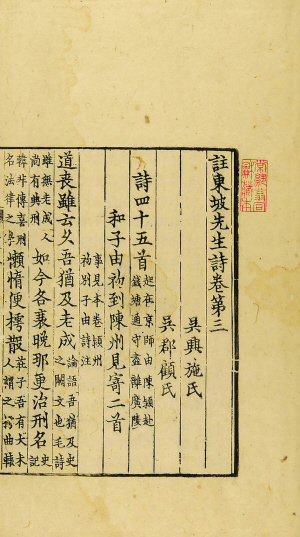 註東坡先生詩卷第三
吳興施氏
吳郡顧氏
詩四十五首
起在京師由陳潁赴
錢塘通守盡離廣陵
和子由初到陳州見寄二首
事見本卷潁州
初別子由詩注
道喪雖云久吾猶及老成
論語吾猶及史
之闕文也毛詩
雖無老成人
尚有典刑
如今各衰晚那更治刑名
史記
韓非傳喜刑
名法律之學
懶惰便樗散
莊子吾有大木
人謂之樗